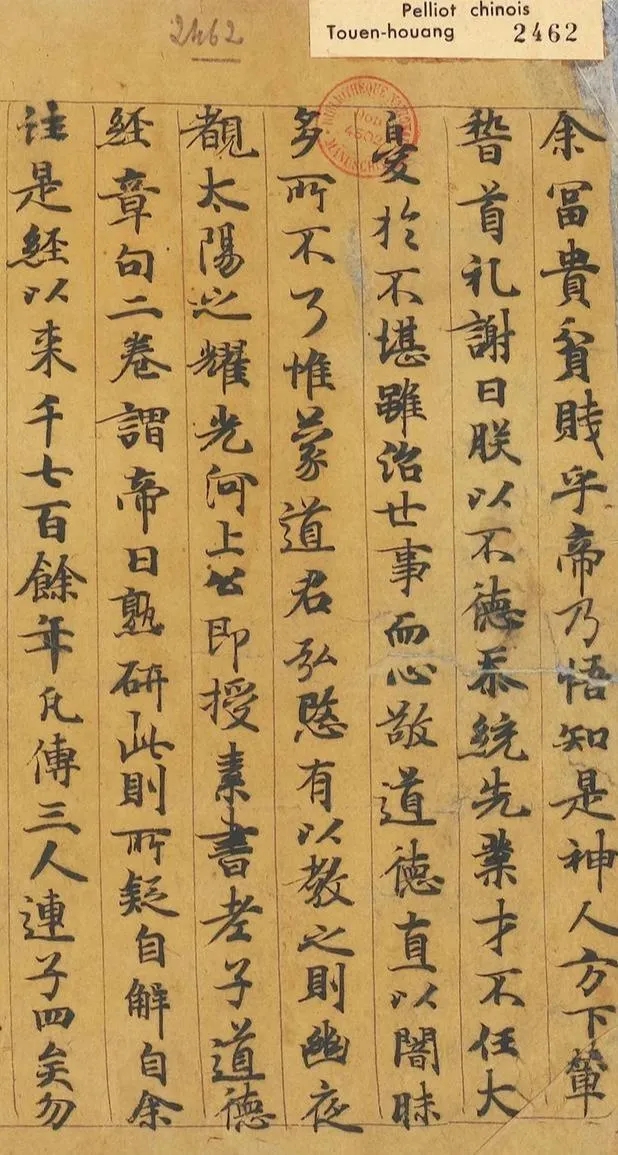 2462
Pelliot chinois
Touen-houang 2462
余冨貴貧賤乎帝乃悟知是神人方下輦
稽首礼謝曰朕以不德忝統先業才不任大
憂於不堪雖治世事而心敬道德直以闇昧
多所不了惟蒙道君弘愍有以教之則幽夜
覩太陽之耀光河上公即授素書老子道德
経章句二卷謂帝曰熟研此則所疑自解自余
註是経以来千七百餘年凡傳三人連子四矣勿